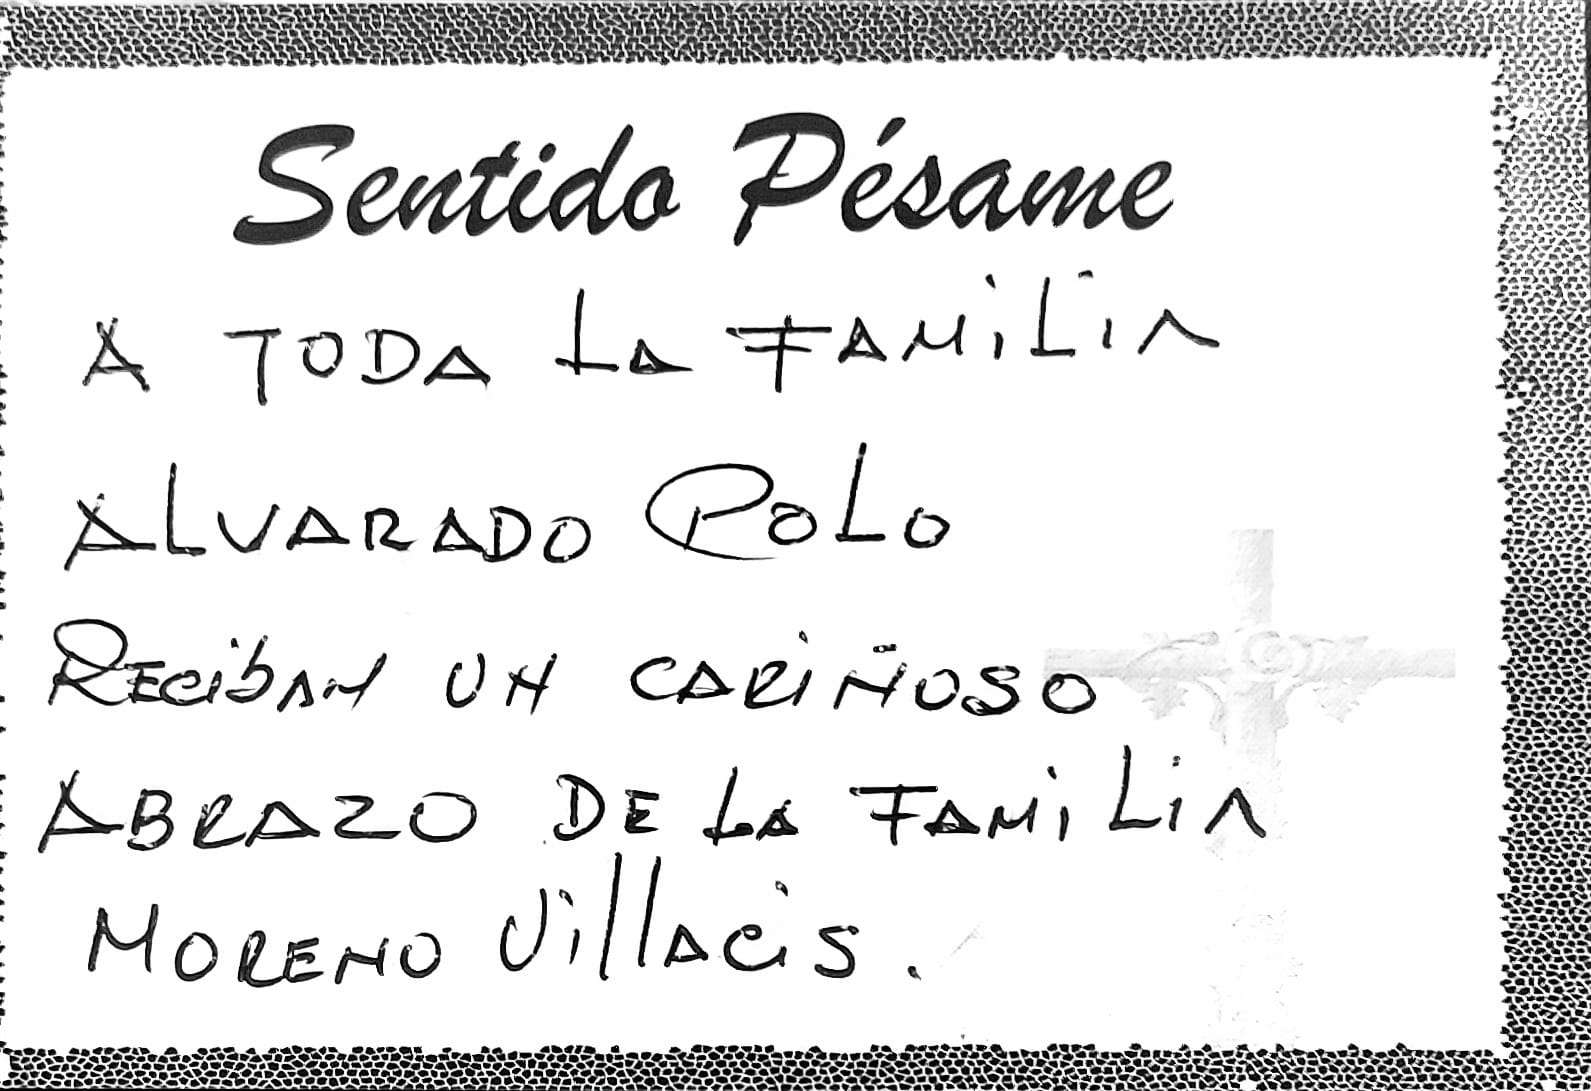 Sentido Pésame
A TODA LA FAMiLiA
ALVARADO POLO
RECibAN UN CARiÑOSO
ABRAZO DE LA FAMiLiA
MORENO Villacis.